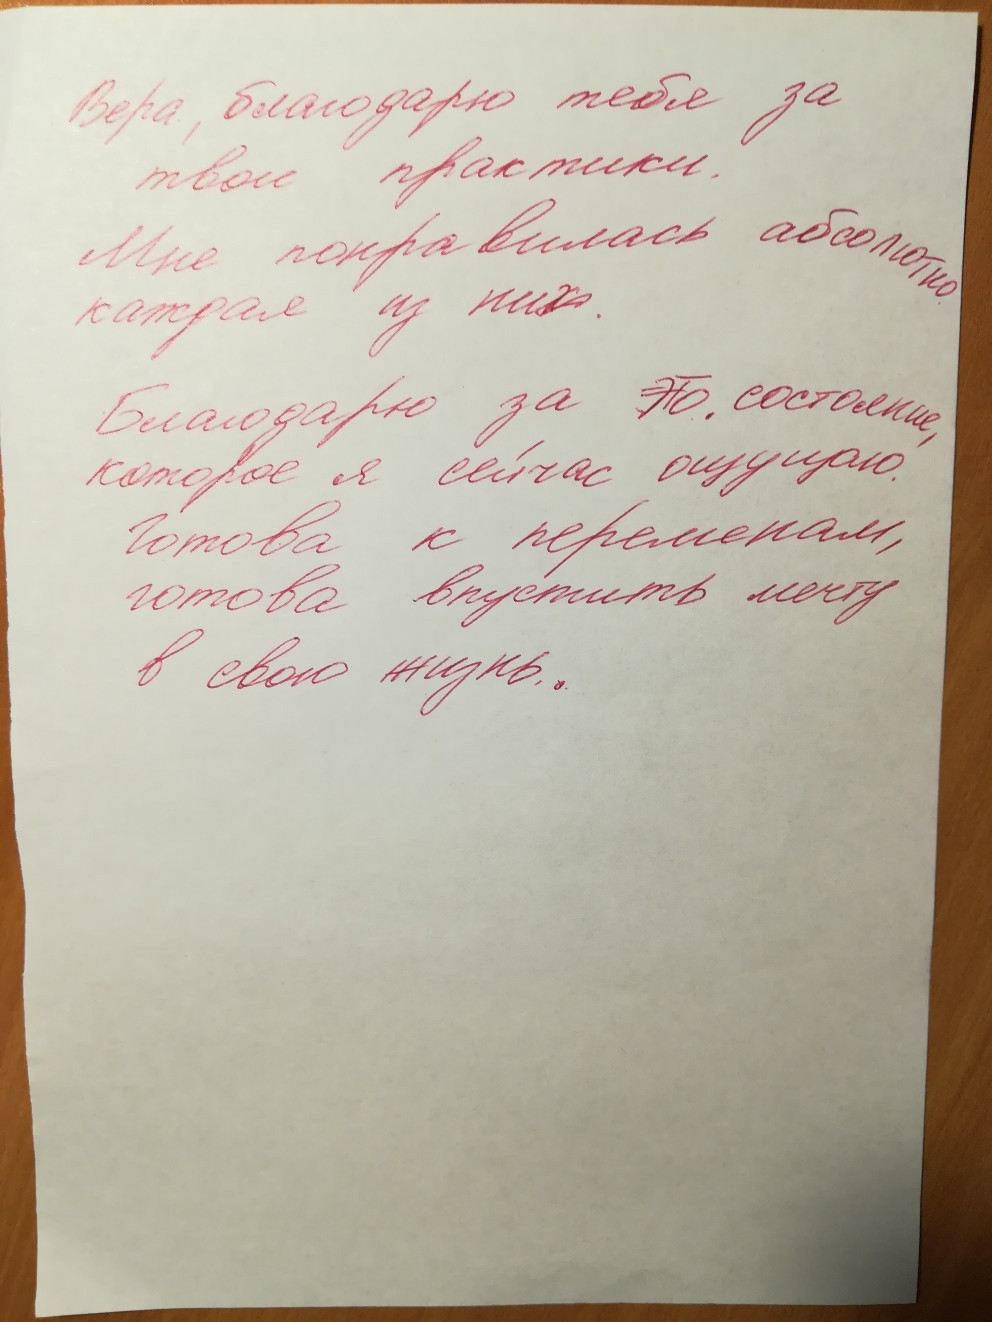 Вера, благодарю тебя за
твои практики.
Мне понравилась абсолютно
каждая из них.
Благодарю за это состояние,
которое я сейчас ощущаю.
Готова к переменам,
готова впустить мечту
в свою жизнь..